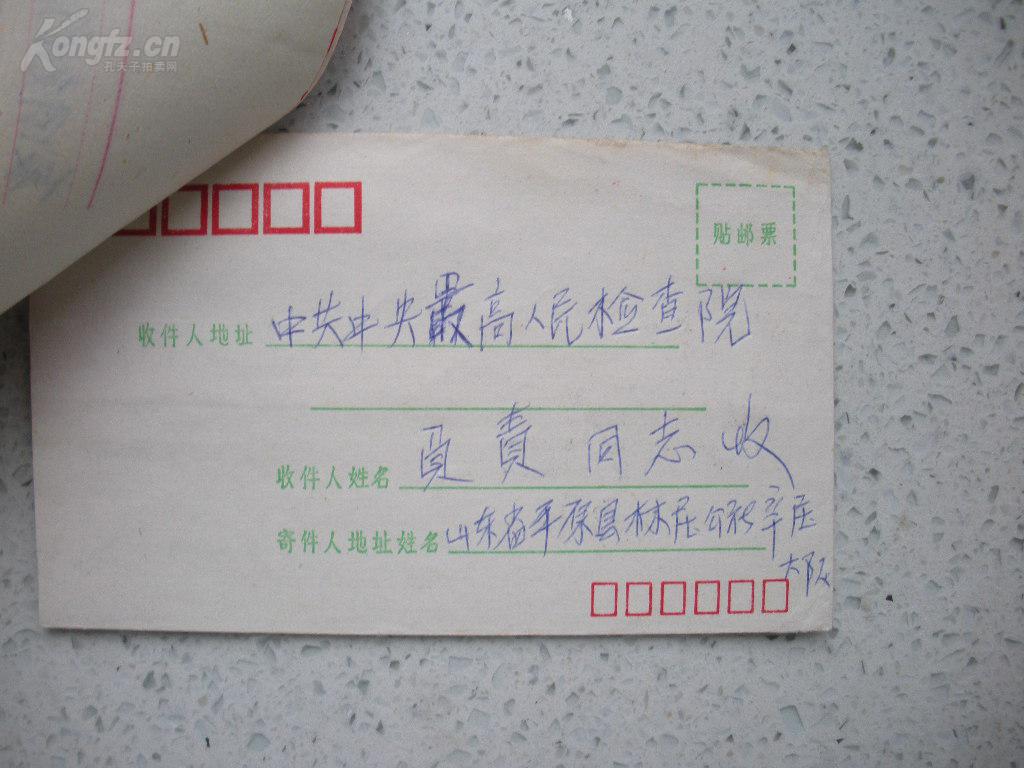 Kongfz.cn
孔夫子拍卖网
贴邮票
收件人地址 中共中央最高人民检查院
收件人姓名 負責同志收
寄件人地址姓名 山东省平原县林庄公社辛庄
大队